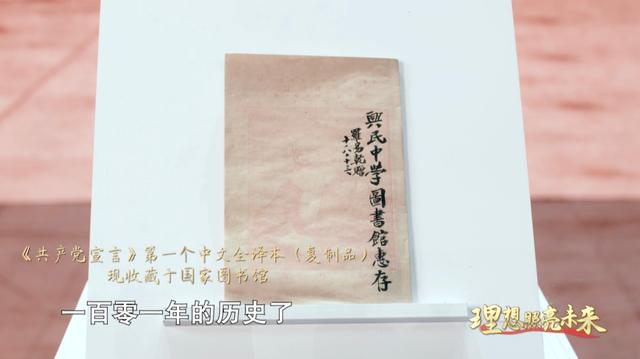 興民中学圖書館惠存
羅易乾贈
十、八、十三、
《共产党宣言》第一个中文全译本（复制品）
现收藏于国家图书馆
一百零一年的历史了
理想照亮未来